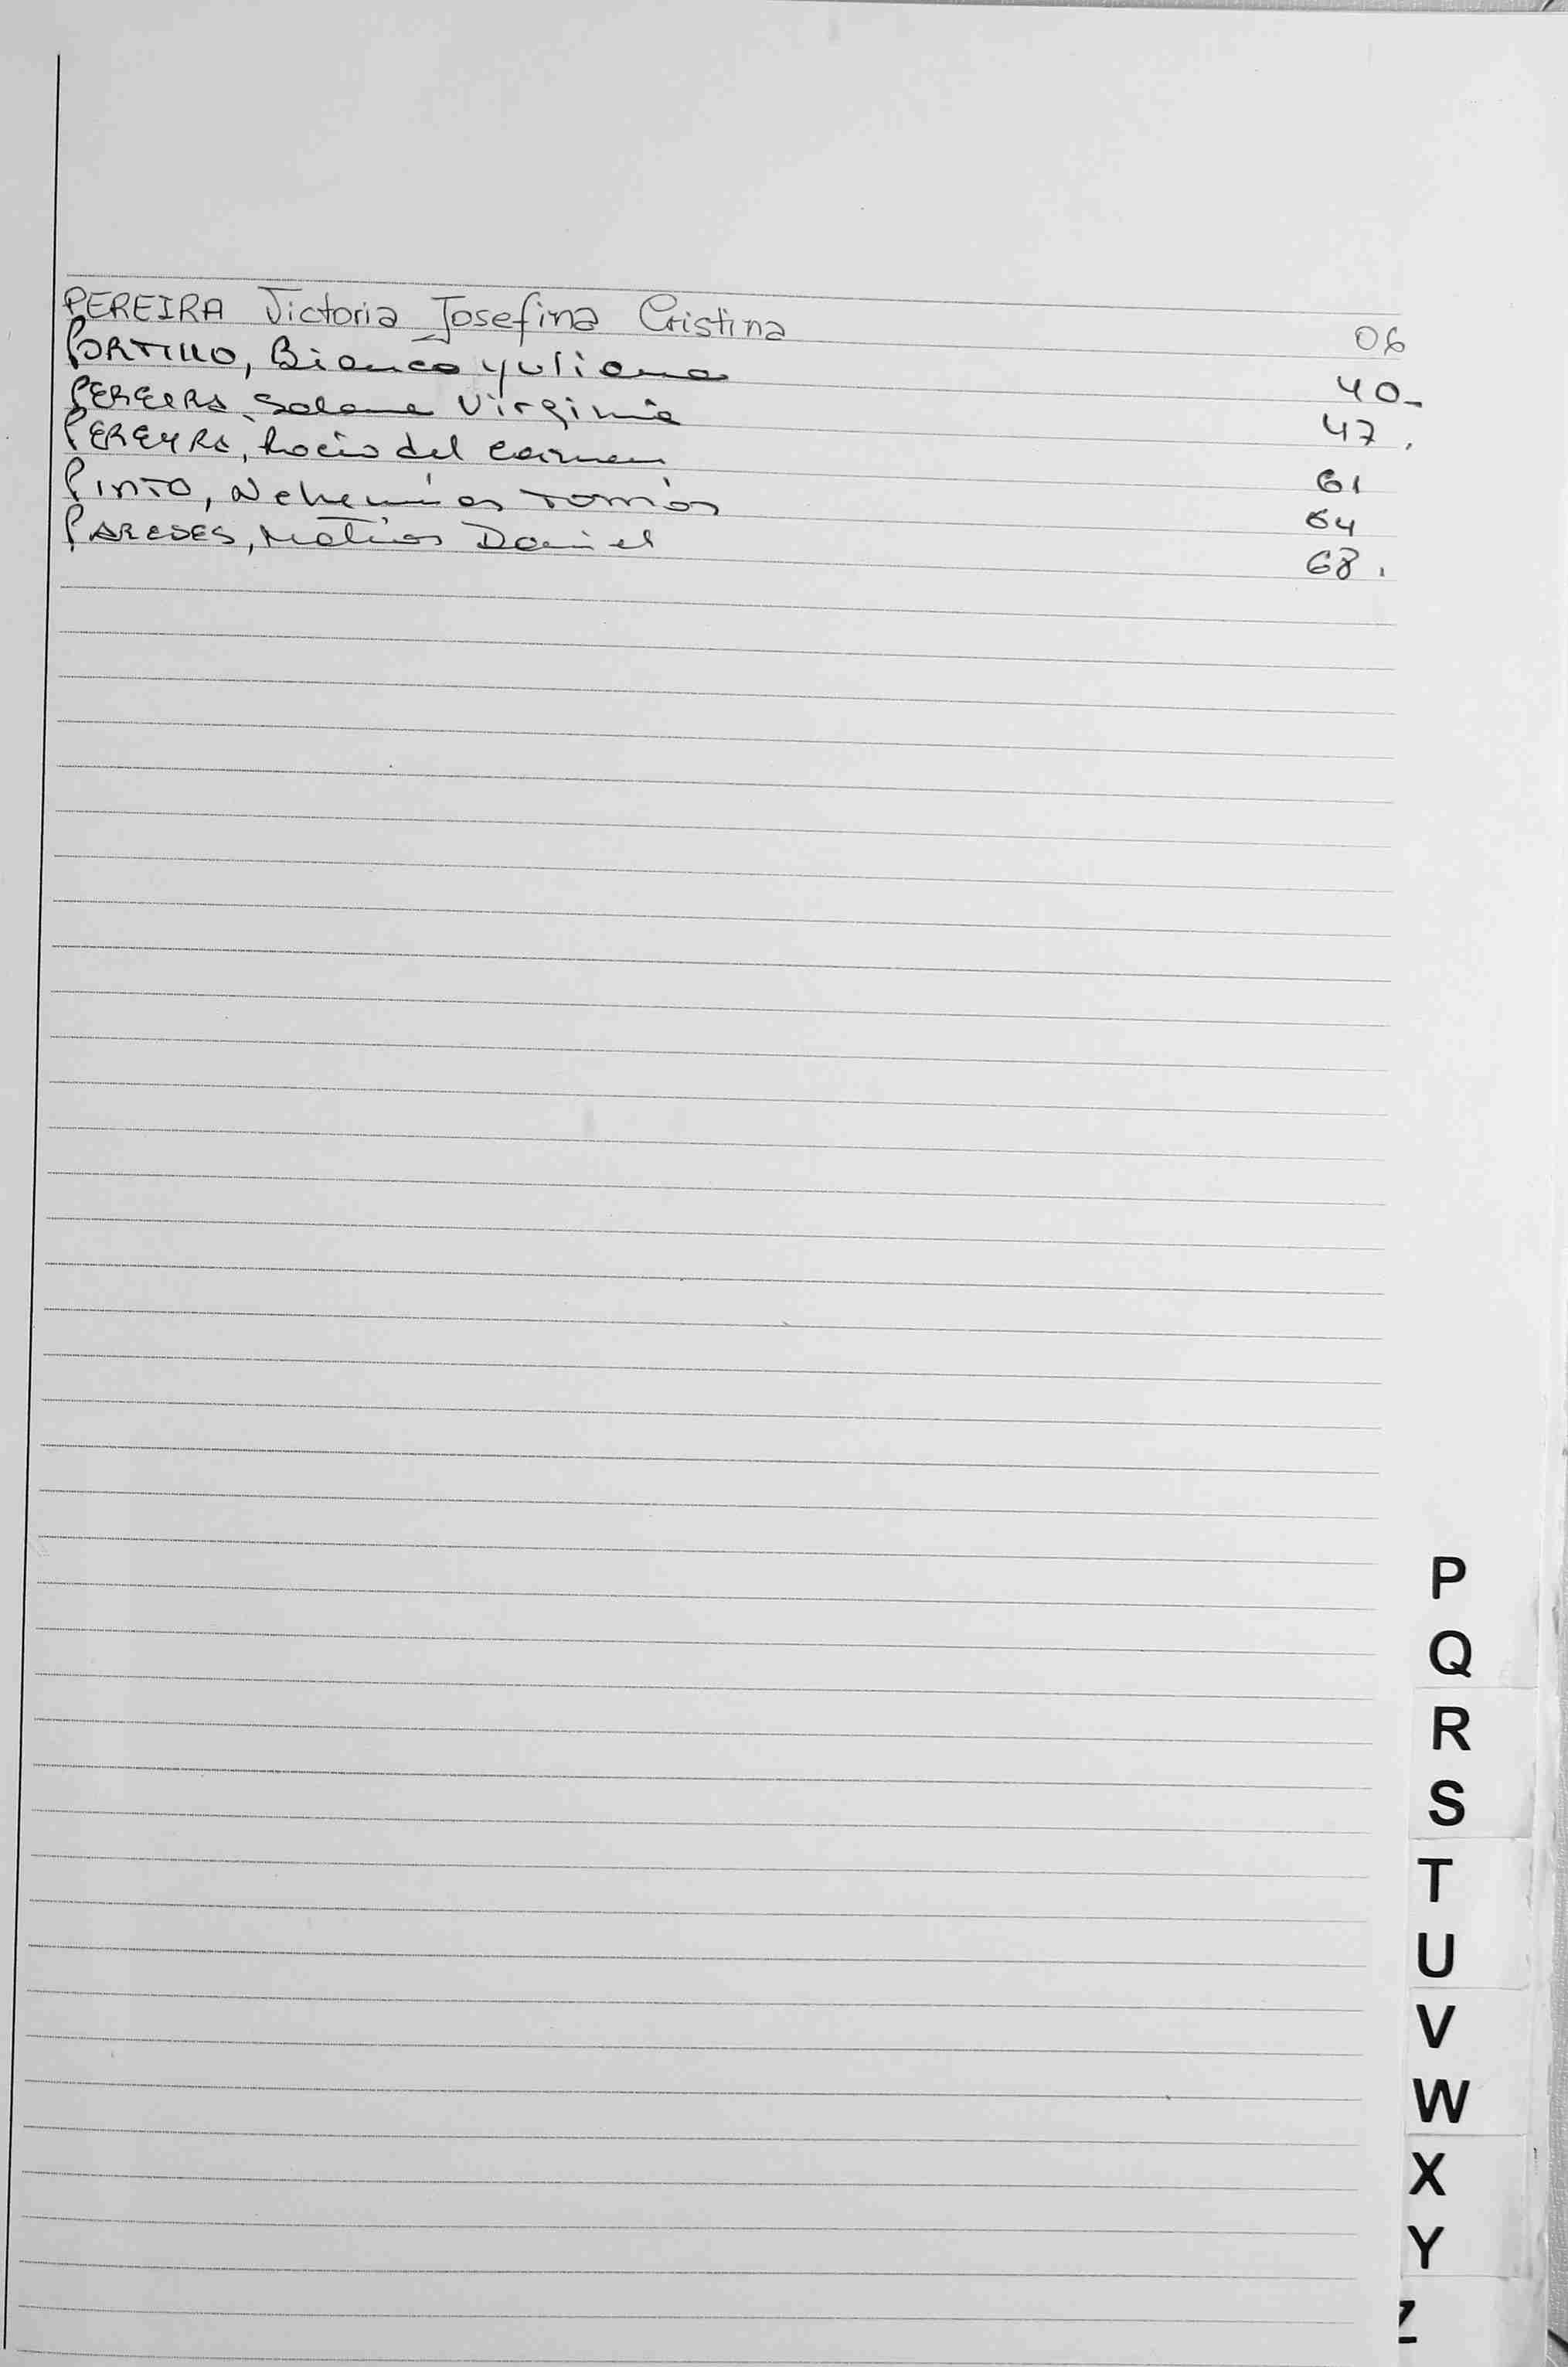 PEREIRA Victoria Josefina Cristina 06
PORTILLO, Bianca Yuliana 40-
PEREIRA, Solana Virginia 47.
PEREYRA, Rocío del Carmen 61
PINTO, Nehemías Tomás 64
PAREDES, Matías Daniel 68.
P
Q
R
S
T
U
V
W
X
Y
Z